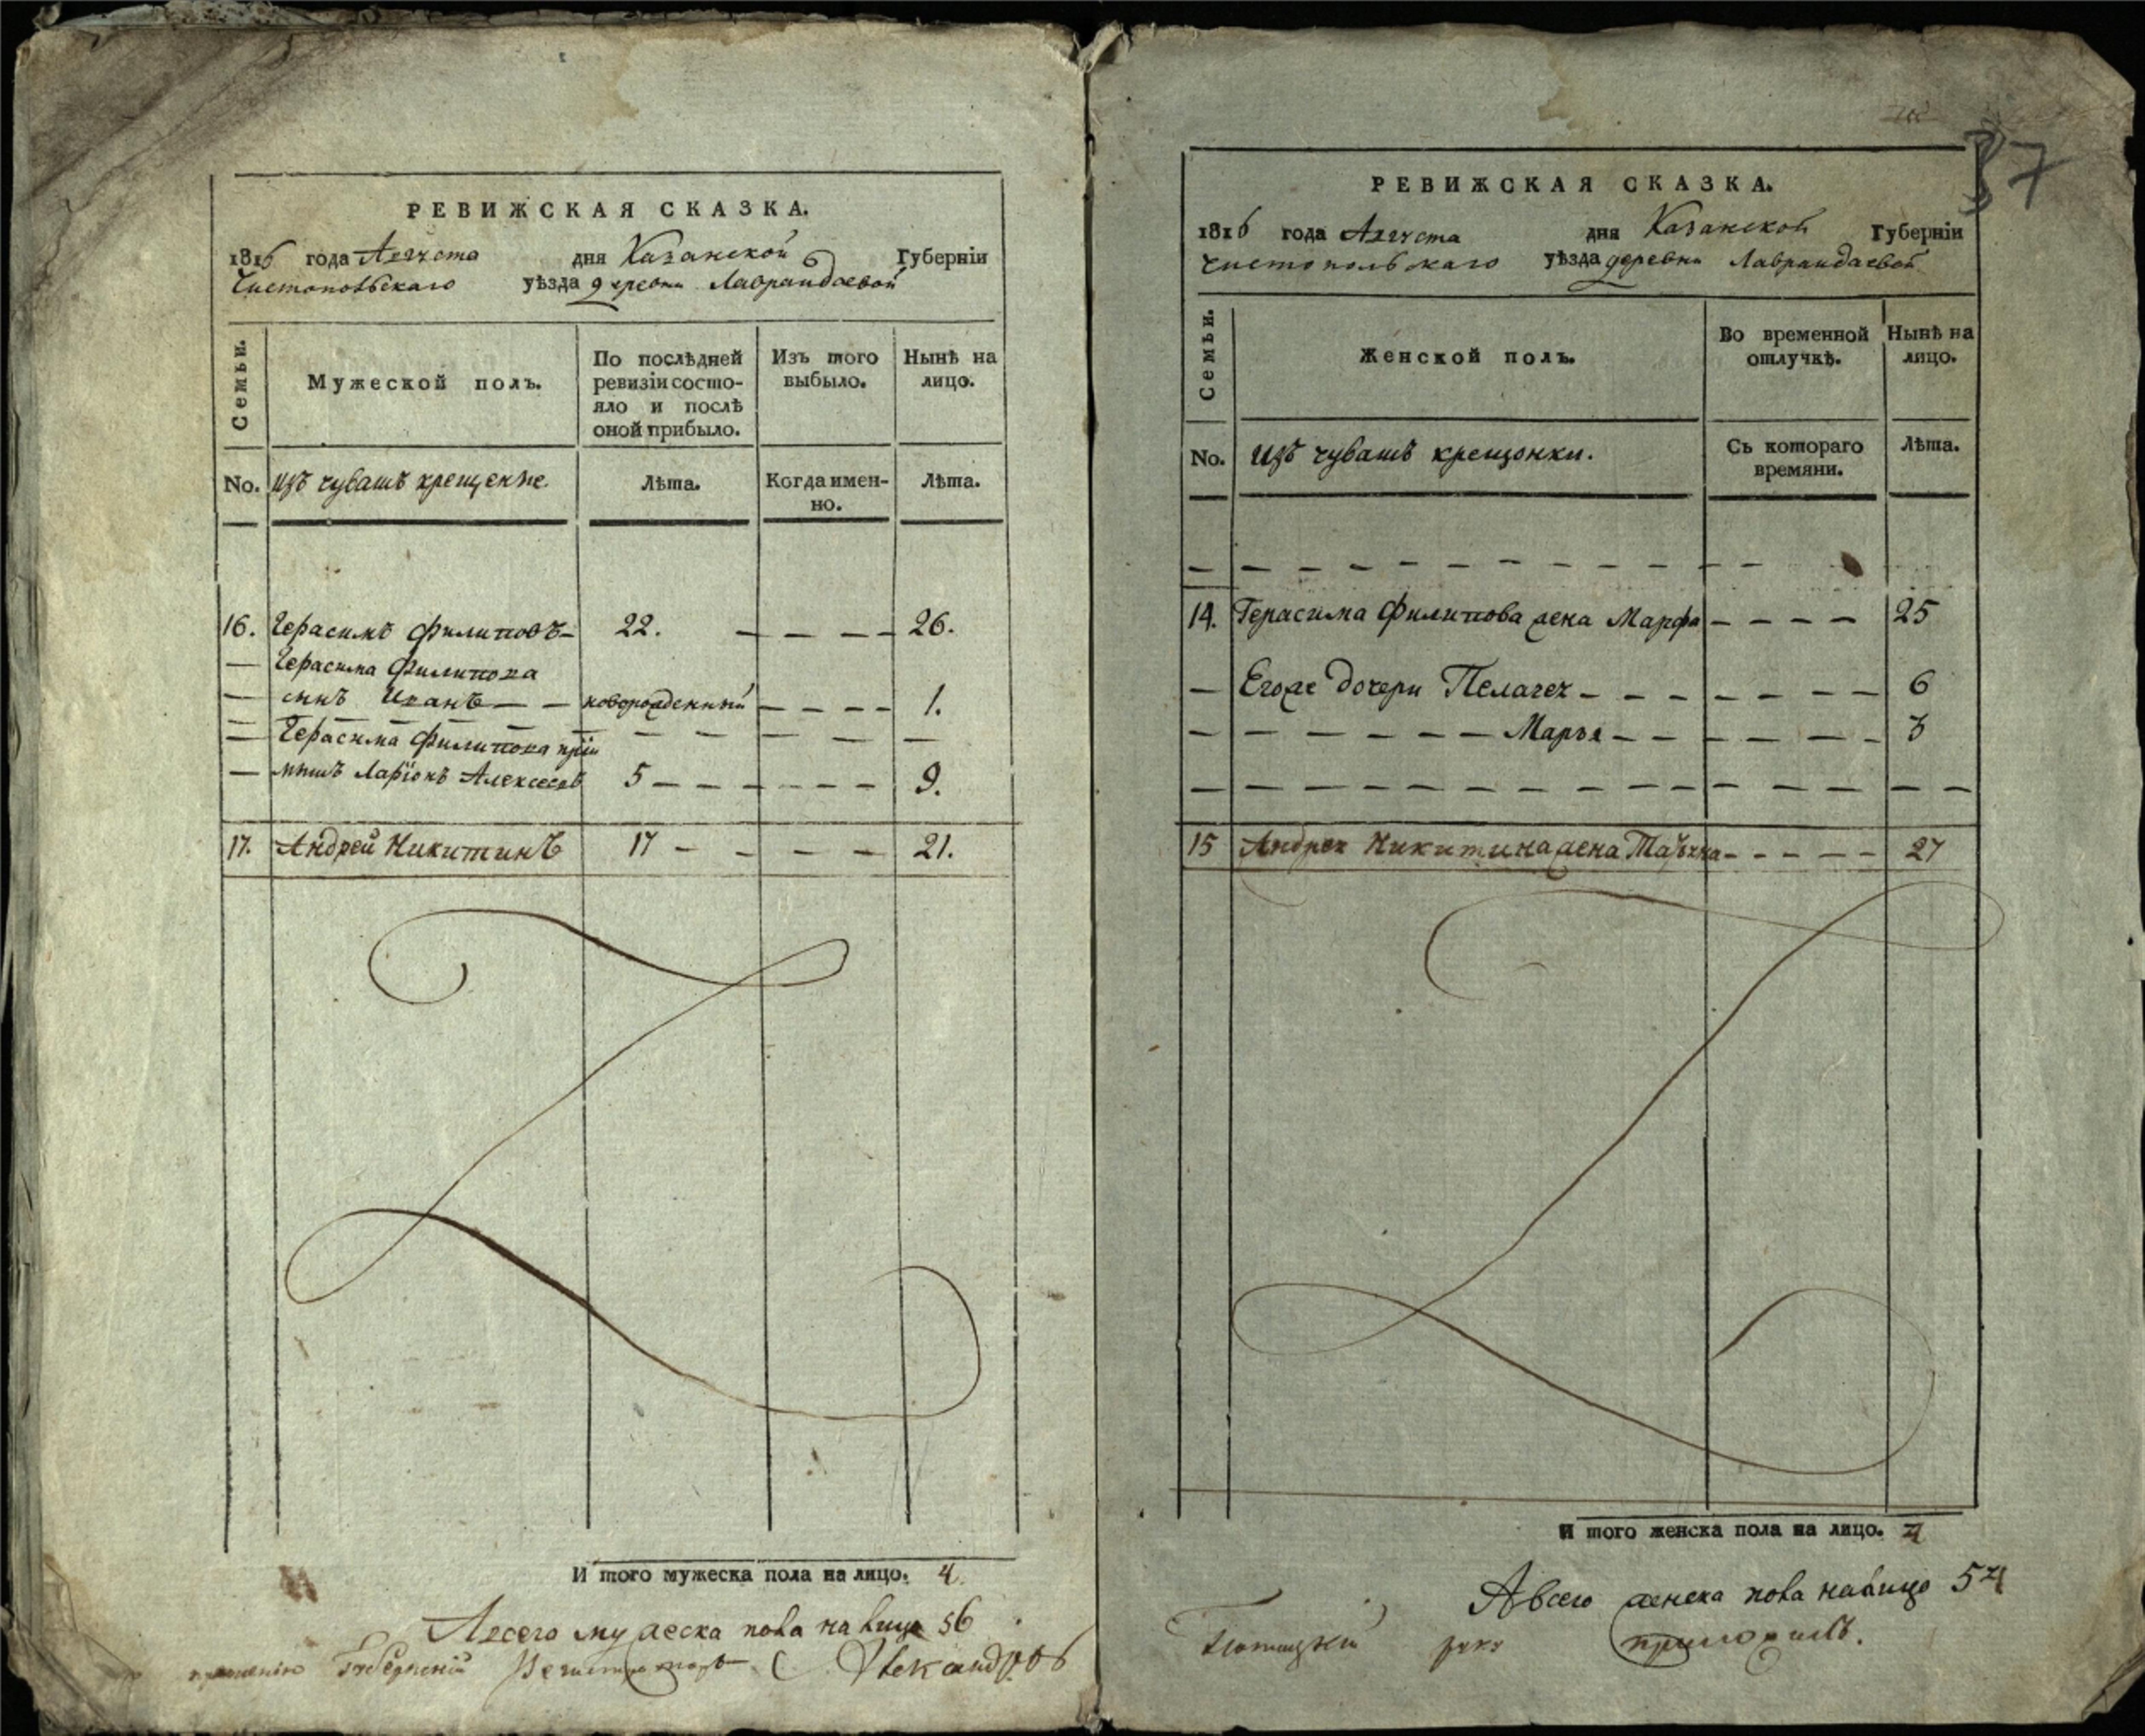 РЕВИЖСКАЯ СКАЗКА.
1816 года Августа дня Казанской Губерніи
Чистопольскаго уѣзда деревни Лавраидаевой
Семьи.
Мужеской полъ.
По послѣдней ревизіи состо-
яло и послѣ
оной прибыло.
Изъ того
выбыло.
Нынѣ на
лицо.
No. изъ чувашъ крещеные. Лѣта. Когда имен-
но. Лѣта.
16. Герасимъ Филиповъ 22. 26.
Герасима Филипова
сынъ Иванъ новорожденный 1.
Герасима Филипова пріи
мышъ Ларіонъ Алексеевъ 5 9.
17. Андрей Никитинъ 17 21.
И того мужеска пола на лицо. 4.
А всего мужеска пола на лицо 56
Губернский Регистраторъ Александровъ
37
РЕВИЖСКАЯ СКАЗКА.
1816 года Августа дня Казанской Губерніи
Чистопольскаго уѣзда деревни Лавраидаевой
Семьи.
Женской полъ.
Во временной
отлучкѣ.
Нынѣ на
лицо.
No. изъ чувашъ крещонки. Съ котораго
времяни. Лѣта.
14. Герасима Филипова жена Марфа 25
Егоже дочери Пелагея 6
Марья 3
15 Андрея Никитина жена 27
И того женска пола на лицо. 4
А всего женска пола налицо 54
руку приложилъ.